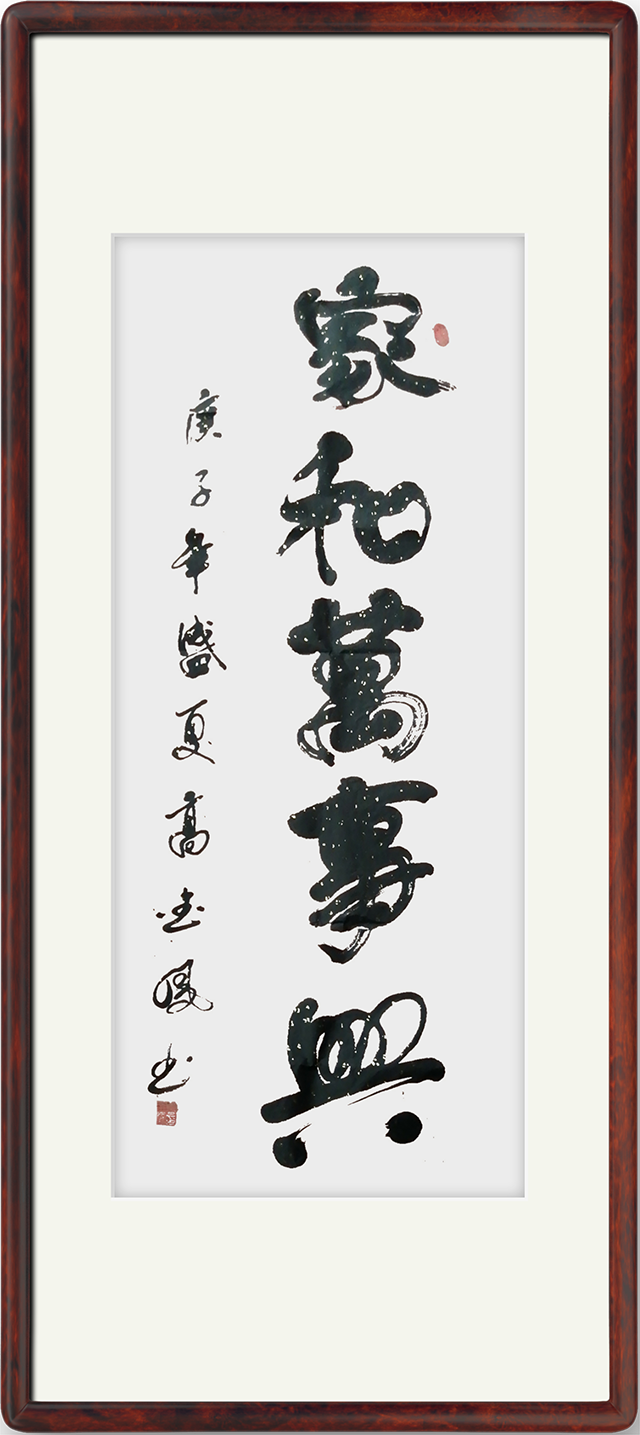 家和萬事興
庚子年盛夏高金鳳书